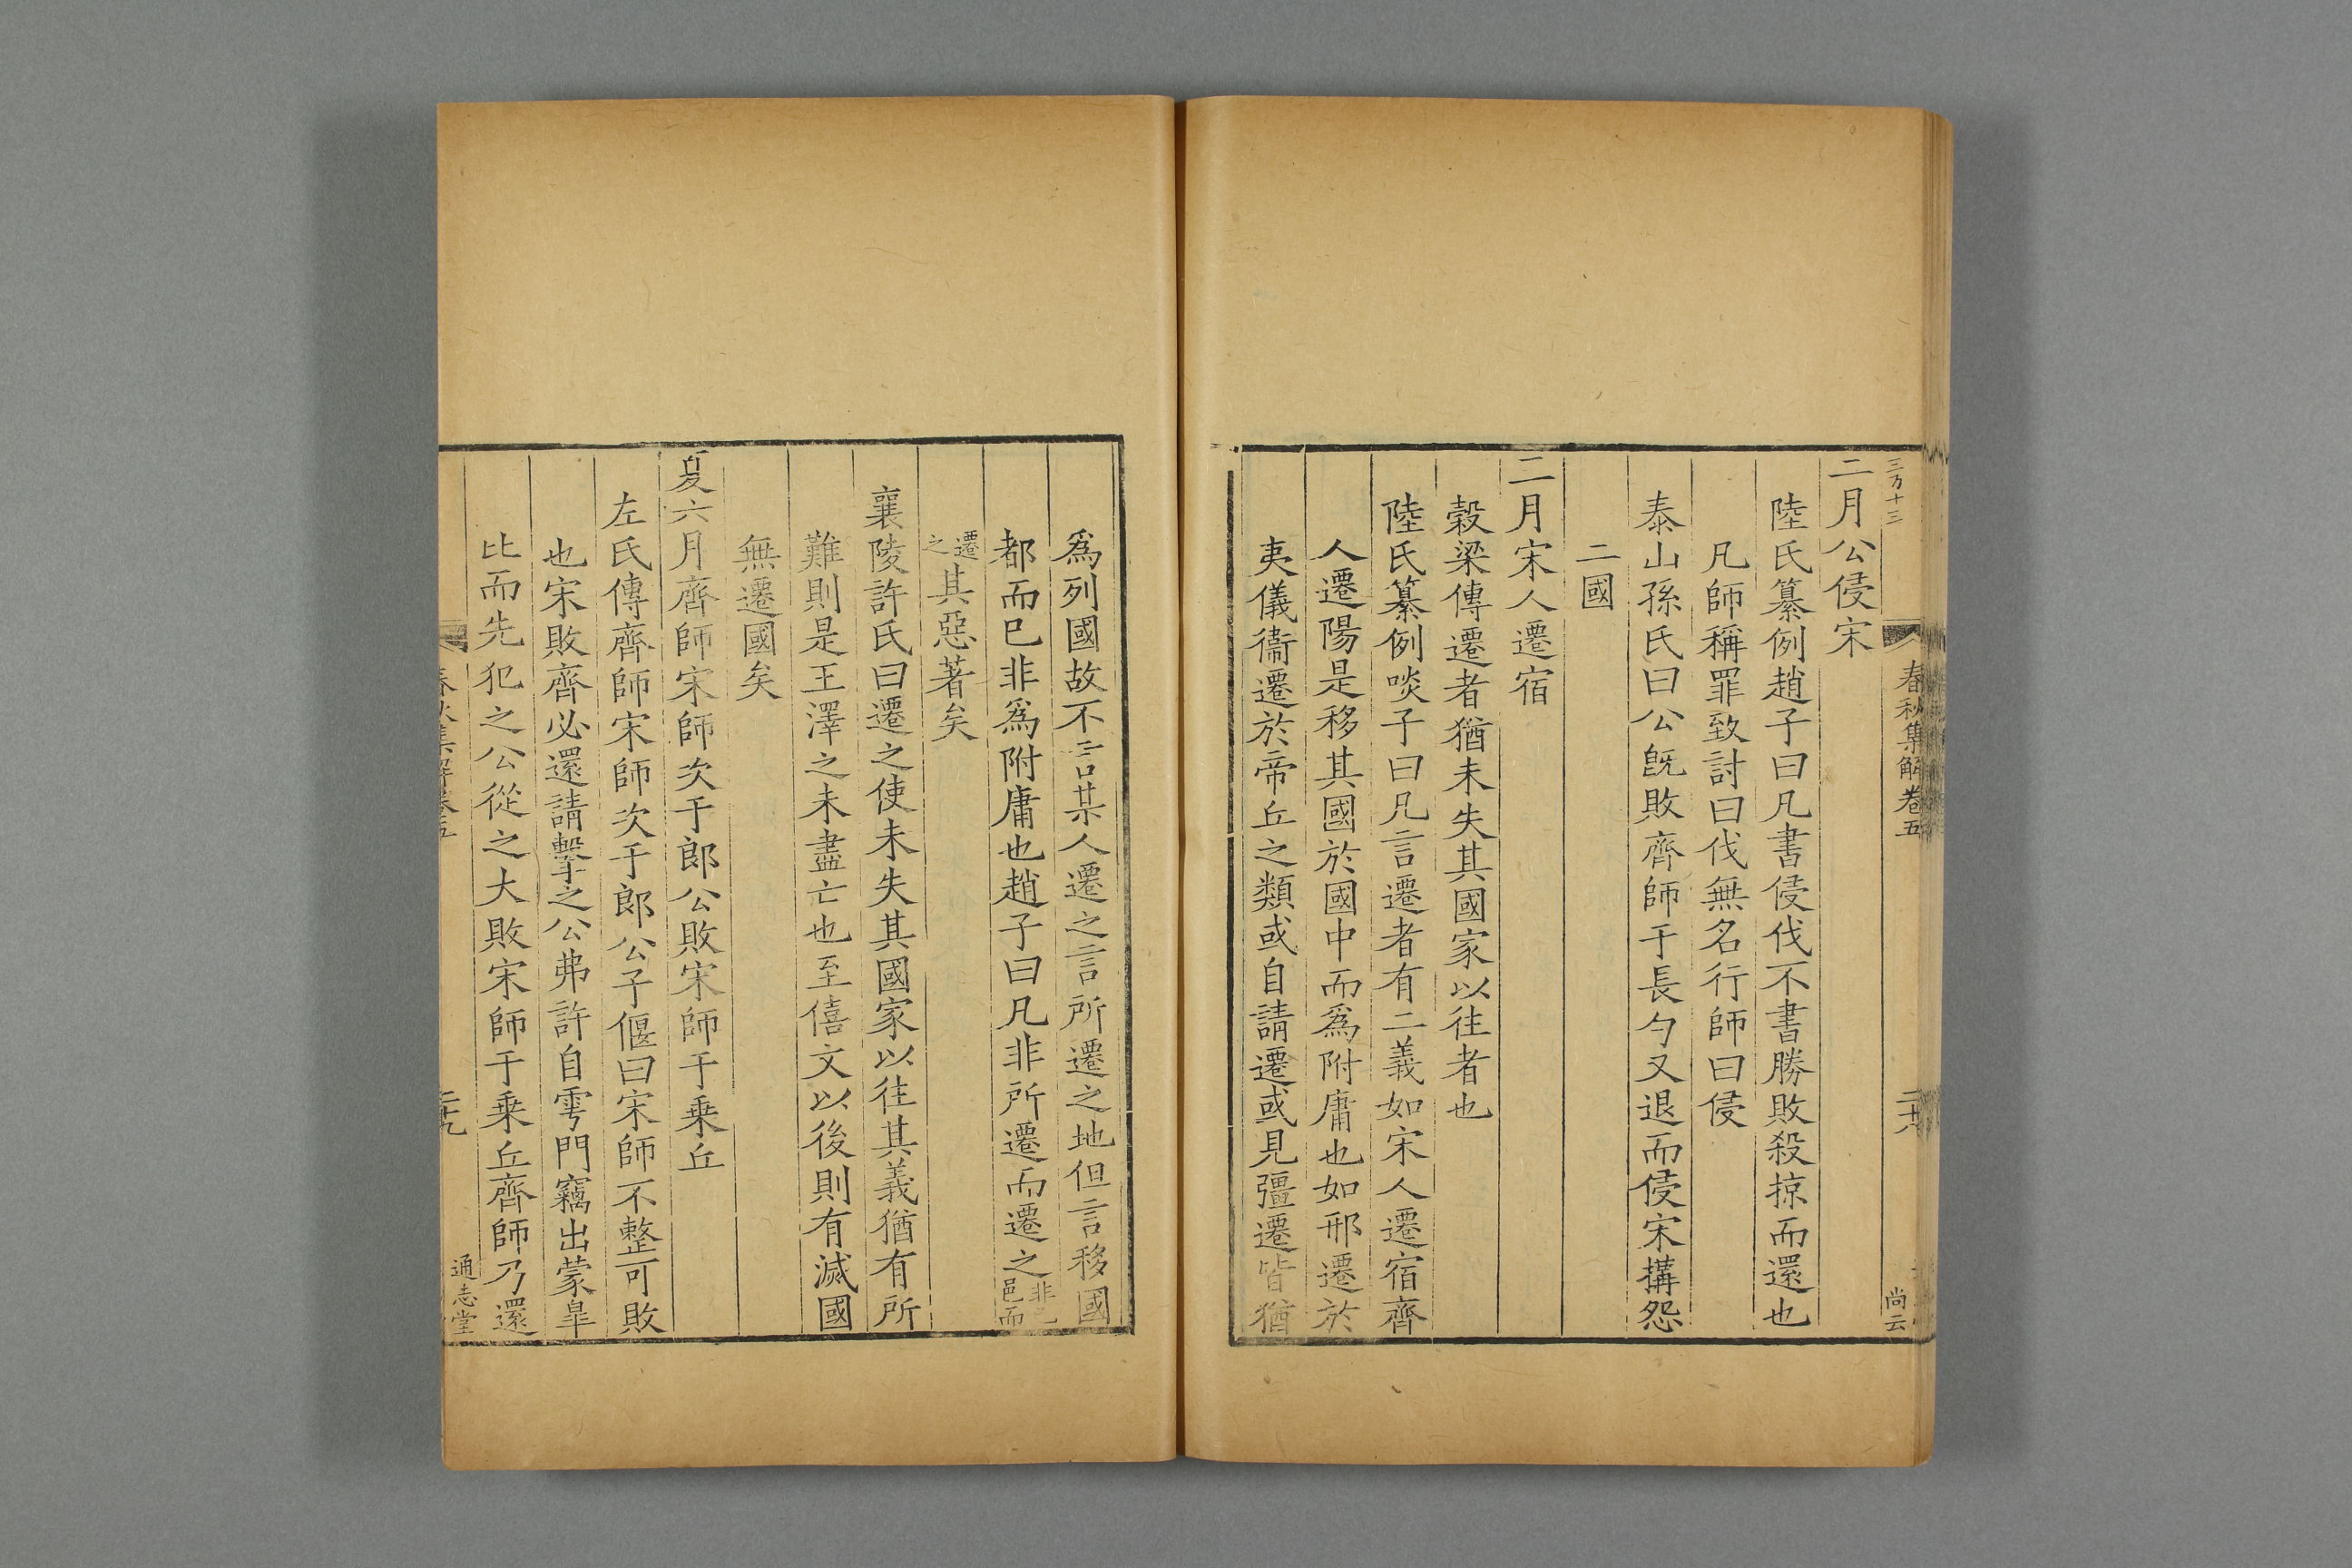 三万十三
春秋集解卷五
二十八
尚云
二月公侵宋
陸氏纂例趙子曰凡書侵伐不書勝敗殺掠而還也
凡師稱罪致討曰伐無名行師曰侵
泰山孫氏曰公旣敗齊師于長勺又退而侵宋搆怨
二國
三月宋人遷宿
穀梁傳遷者猶未失其國家以往者也
陸氏纂例啖子曰凡言遷者有二義如宋人遷宿齊
人遷陽是移其國於國中而爲附庸也如邢遷於
夷儀衞遷於帝丘之類或自請遷或見彊遷皆猶
爲列國故不言某人遷之言所遷之地但言移國
都而已非爲附庸也趙子曰凡非所遷而遷之非已
邑而
遷
之其惡著矣
襄陵許氏曰遷之使未失其國家以往其義猶有所
難則是王澤之未盡亡也至僖文以後則有滅國
無遷國矣
夏六月齊師宋師次于郎公敗宋師于乗丘
左氏傳齊師宋師次于郎公子偃曰宋師不整可敗
也宋敗齊必還請擊之公弗許自雩門竊出蒙臯
比而先犯之公從之大敗宋師于乗丘齊師乃還
春秋集解卷五
二十九
通志堂